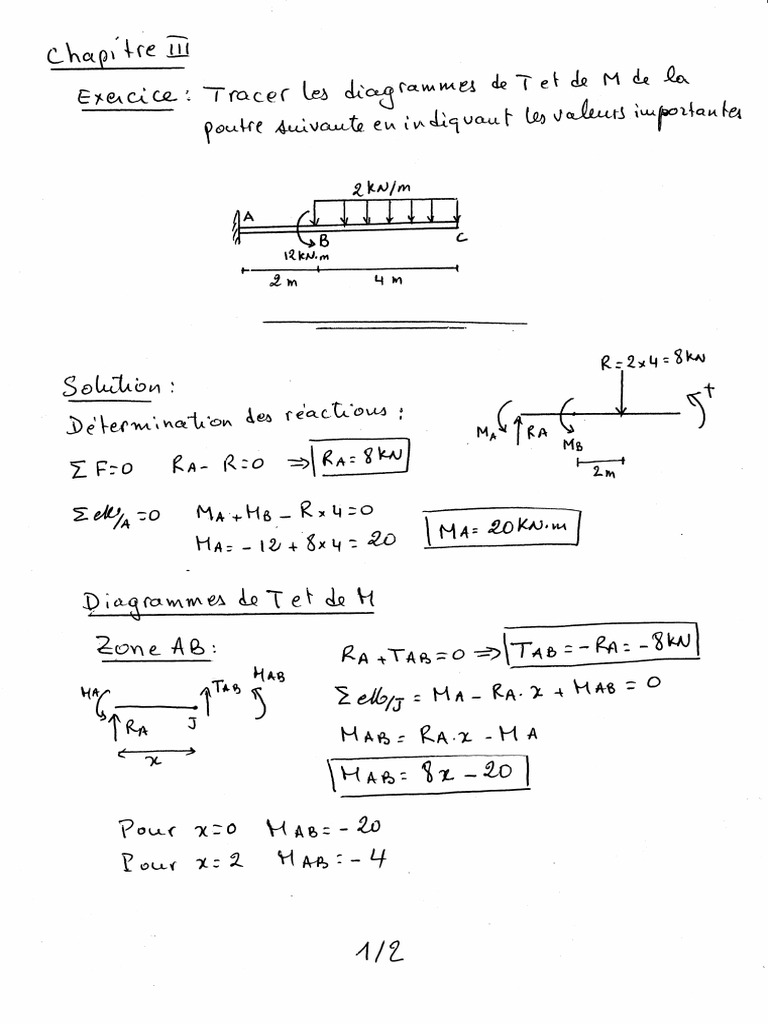 Chapitre III
Exercice : Tracer les diagrammes de T et de M de la
poutre suivante en indiquant les valeurs importantes
2 KN/m
A
B
C
12 KN.m
2 m
4 m
Solution :
R = 2 x 4 = 8 KN
+
Détermination des réactions :
MA
RA
MB
2 m
Σ F = 0 RA - R = 0 ⇒ RA = 8 KN
Σ M/A = 0 MA + MB - R x 4 = 0
MA = - 12 + 8 x 4 = 20
MA = 20 KN.m
Diagrammes de T et de M
Zone AB :
RA + TAB = 0 ⇒ TAB = - RA = - 8 KN
MA
TAB
MAB
RA
J
x
Σ M/J = MA - RA . x + MAB = 0
MAB = RA . x - MA
MAB = 8x - 20
Pour x = 0 MAB = - 20
Pour x = 2 MAB = - 4
1/2